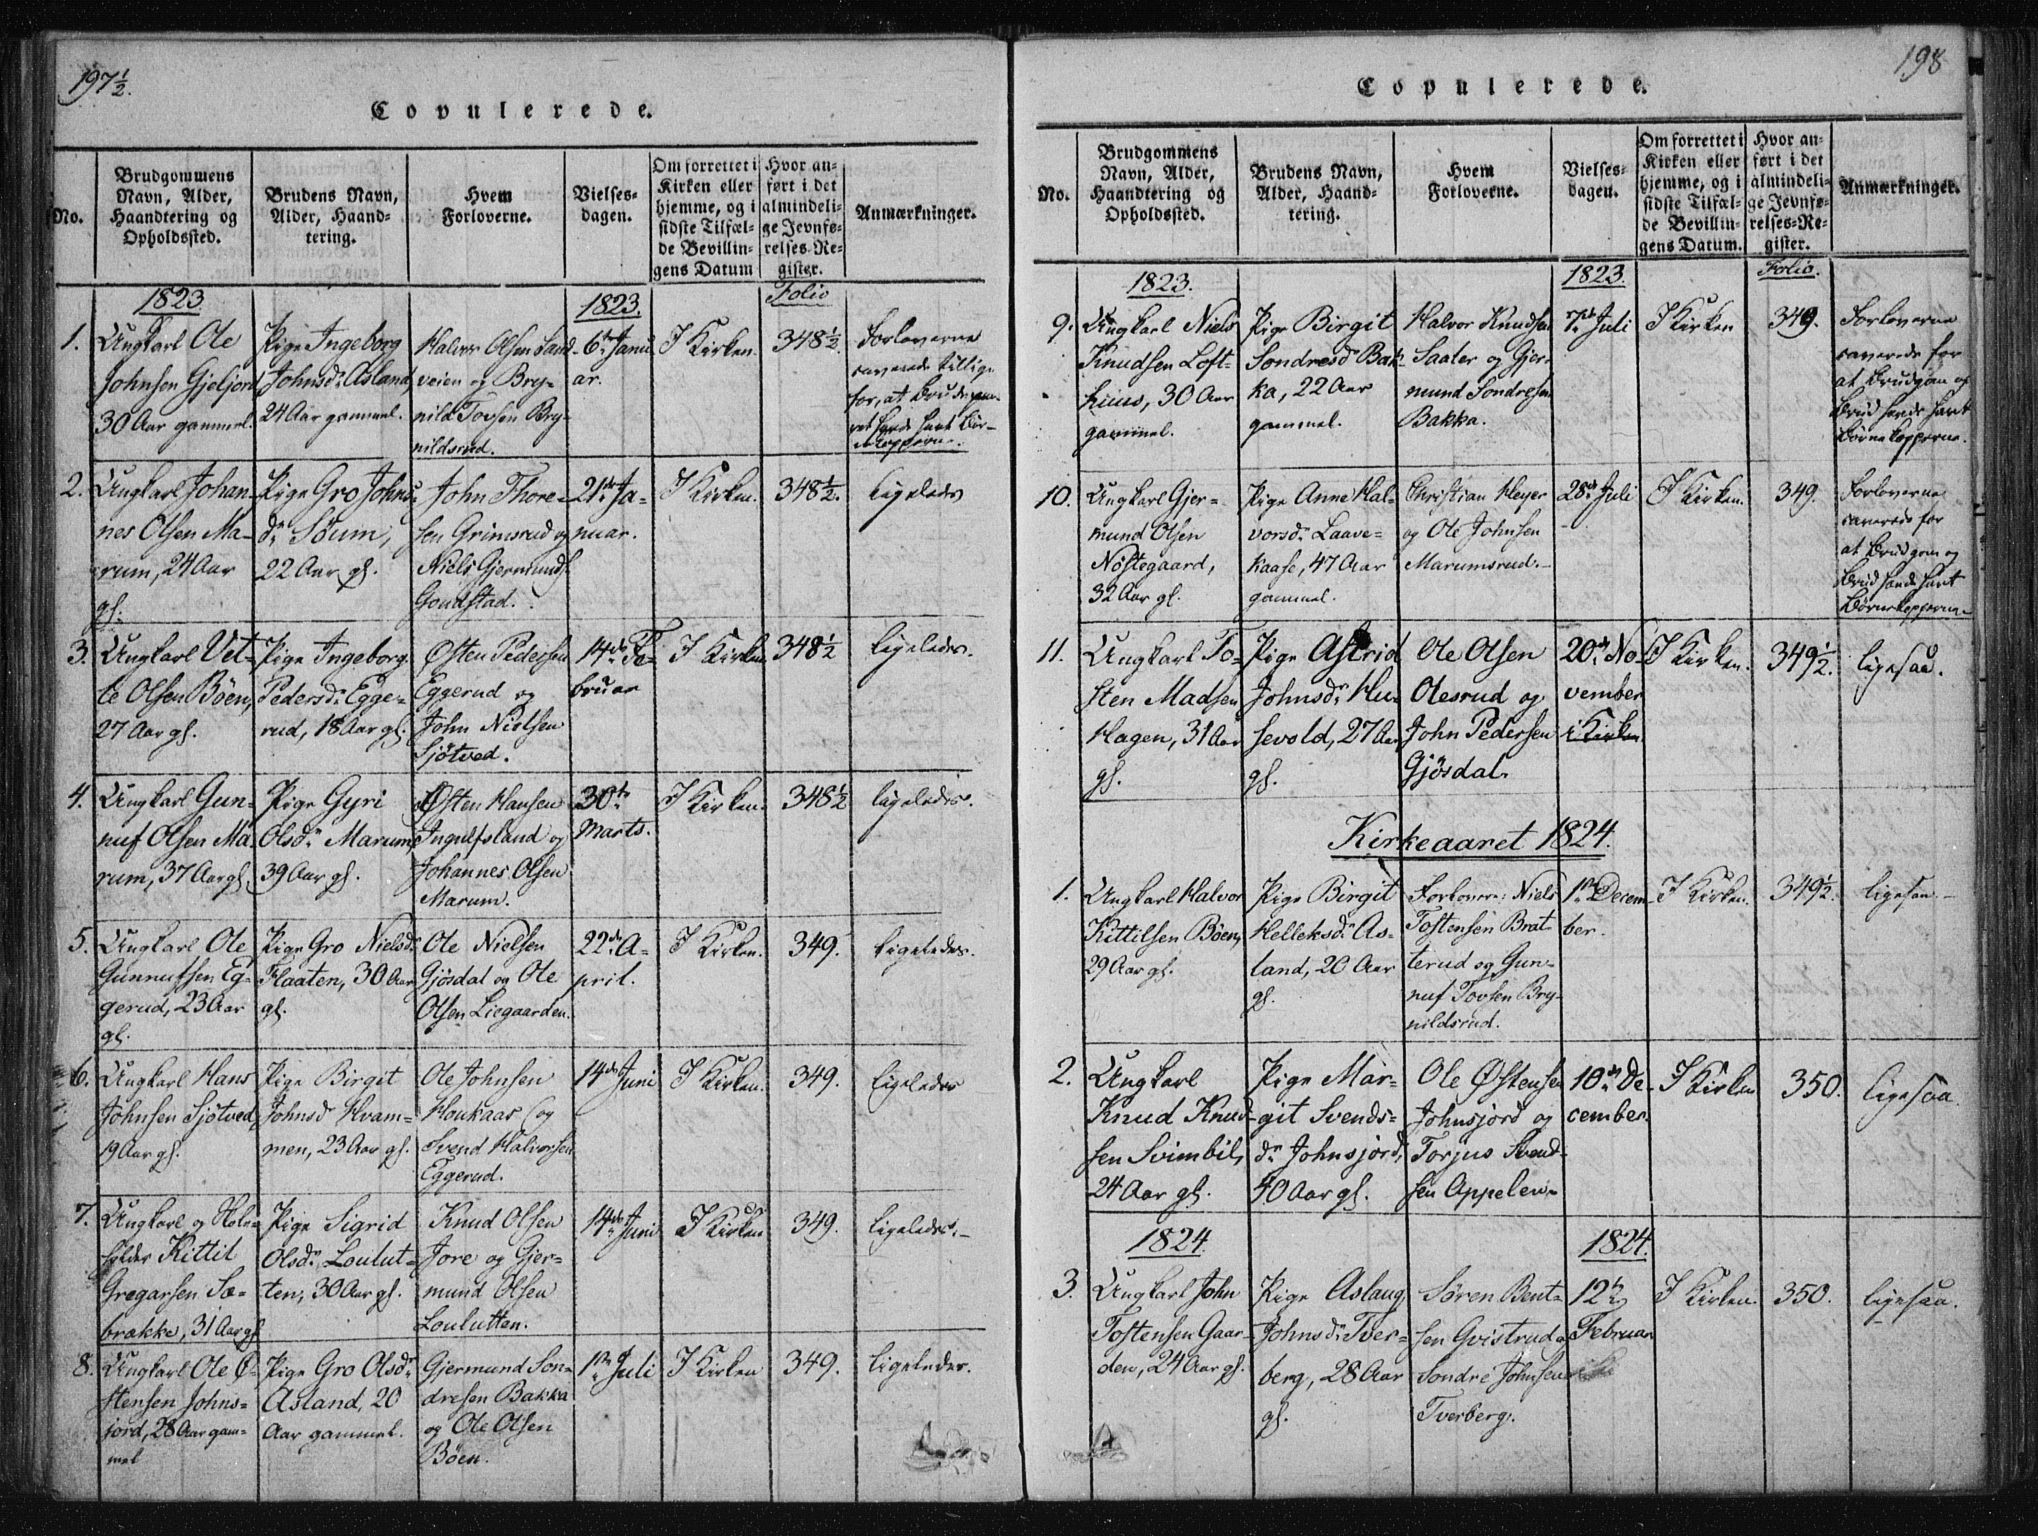 197½.
Copulerede.
No.
Brudgommens
Navn, Alder,
Haandtering og
Opholdssted.
Brudens Navn,
Alder, Haand-
tering.
Hvem
Forloverne.
Vielses-
dagen.
Om forrettet i
Kirken eller
hjemme, og i
sidste Tilfæl-
de Bevillin-
gens Datum
Hvor an-
ført i det
almindeli-
ge Jevnfø-
relses-Re-
gister.
Anmærkninger.
1823
1823.
Folio
1.
Ungkarl Ole
Johnsen Gjeljord
30 Aar gammel.
Pige Ingeborg
Johnsdr. Asland,
24 Aar gammel.
Halvor Olsen Sand-
veien og Bry-
nild Tovsen Bry-
nildsrud.
6te Janu
ar.
I Kirken.
348½.
Forloverne
caverede tillige
for, at
havde havt Bør-
nekopperne.
2.
Ungkarl Johan-
nes Olsen Ma-
rum, 24 Aar
gl.
Pige Gro Johns-
dr. Söum,
22 Aar gl.
John Thore-
sen Grimsrud og
Niels Gjermunds.
Gondstad.
21de Ja-
nuar.
I Kirken.
348½.
Ligeledes
3.
Ungkarl Vet-
le Olsen Böen,
27 Aar gl.
Pige Ingeborg
Pedersdr. Egge-
rud, 18 Aar gl.
Østen Pedersen
Eggerud og
John Nielsen
Sjötved.
14de Fe-
bruar
I Kirken
348½
ligeledes.
4.
Ungkarl Gun-
nuf Olsen Ma
rum, 37 Aar gl.
Pige Gyri
Olsdr. Marum,
39 Aar gl.
Østen Hansen
Ingulfsland og
Johannes Olsen
Marum.
30te
Marts.
I Kirken.
348½
ligeledes.
5.
Ungkarl Ole
Gunnufsen Eg-
gerud, 23 Aar
gl.
Pige Gro Nielsdr.
Flaaten, 30 Aar
gl.
Ole Nielsen
Gjösdal og Ole
Olsen Liegaarden.
22de A-
pril.
I Kirken.
349.
Ligeledes.
6.
Ungkarl Hans
Johnsen Sjötved,
19 Aar gl.
Pige Birgit
Johnsd Hvam-
men, 23 Aar gl.
Ole Johnsen
Houkaas og
Svend Halvorsen
Eggerud.
14de Juni
I Kirken.
349.
Ligeledes
7.
Ungkarl og
Kittil
Gregarsen Sæ-
brække, 31 Aar gl
Pige Sigrid
Olsdr. Loulut-
ten, 30 Aar gl.
Knud Olsen
Jore og Gjer-
mund Olsen
Loulutten.
14de Juni
I Kirken
349.
Ligeledes.
8.
Ungkarl Ole Ø-
stensen Johns-
jord, 28 Aar gam-
mel
Pige Gro Olsdr.
Asland, 20
Aar gammel.
Gjermund Son-
dresen Bakka
og Ole Olsen
Böen.
1ste Juli
I Kirken
349.
Ligeledes.
198
Copulerede.
No.
Brudgommens
Navn, Alder,
Haandtering og
Opholdssted.
Brudens Navn,
Alder, Haand-
tering.
Hvem
Forloverne.
Vielses-
dagen.
Om forrettet i
Kirken eller
hjemme, og i
sidste Tilfæl-
de Bevillin-
gens Datum.
Hvor an-
ført i det
almindeli-
ge Jevnfø-
relses-Re-
gister.
Anmærkninger.
1823.
1823.
Folio.
9.
Ungkarl Niels
Knudsen Loft-
huus, 30 Aar
gammel.
Pige Birgit
Sondresdr. Bak-
ka, 22 Aar
gammel.
Halvor Knudsen
Saater og Gjer-
mund Sondresen
Bakka.
7de Juli
I Kirken
349.
Forloverne
caverede for
at Brudgom og
Brud havde havt
Børnekopperne.
10.
Ungkarl Gjer-
mund Olsen
Nöstegaard,
32 Aar gl.
Pige Anne Hal-
vorsdr. Laave-
kaase, 47 Aar
gammel.
Christian Heyer
og Ole Johnsen
Marumsrud.
28de Juli
I Kirken.
349.
Forloverne
caverede for
at Brudgom og
Brud havde havt
Børnekopperne
11.
Ungkarl To-
sten Madsen
Hagen, 31 Aar
gl.
Pige Astrid
Johnsdr. Hu-
sevold, 27 Aar
gl.
Ole Olsen
Olesrud og
John Pedersen
Gjösdal.
20de No-
vember
i Kirken
I Kirken.
349½.
ligesaa.
Kirkeaaret 1824.
1.
Ungkarl Halvor
Kittilsen Böen,
29 Aar gl.
Pige Birgit
Helleksdr. As-
land, 20 Aar
gl.
Forlovere: Niels
Tostensen Brat-
terud og Gun-
nuf Tovsen Bry-
nildsrud.
1ste Decem-
ber.
I Kirken.
349½.
ligesaa.
2.
Ungkarl
Knud Knud-
sen Svimbil,
24 Aar gl.
Pige Mar-
git Svends-
dr. Johnsjord,
40 Aar gl.
Ole Østensen
Johnsjord og
Torjus Svend-
sen Appelen.
10de De
cember.
I Kirken
350.
ligesaa
1824.
1824.
3.
Ungkarl John
Tostensen Gaar-
den, 24 Aar gl.
Pige Aslaug
Johnsdr. Tver-
berg, 28 Aar
gl.
Sören Bent-
sen Gvistrud og
Sondre Johnsen
Tverberg.
12te
Februar
I Kirken.
350.
ligesaa.